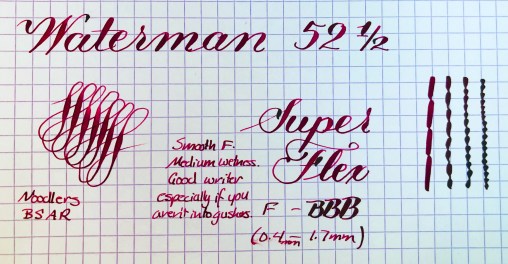 Waterman 52 1/2
Super
Flex
Smooth F.
Medium wetness.
Good writer
especially if you
aren't into gushers.
Noodlers
BSAR
F - BBB
(0.4mm - 1.7mm)